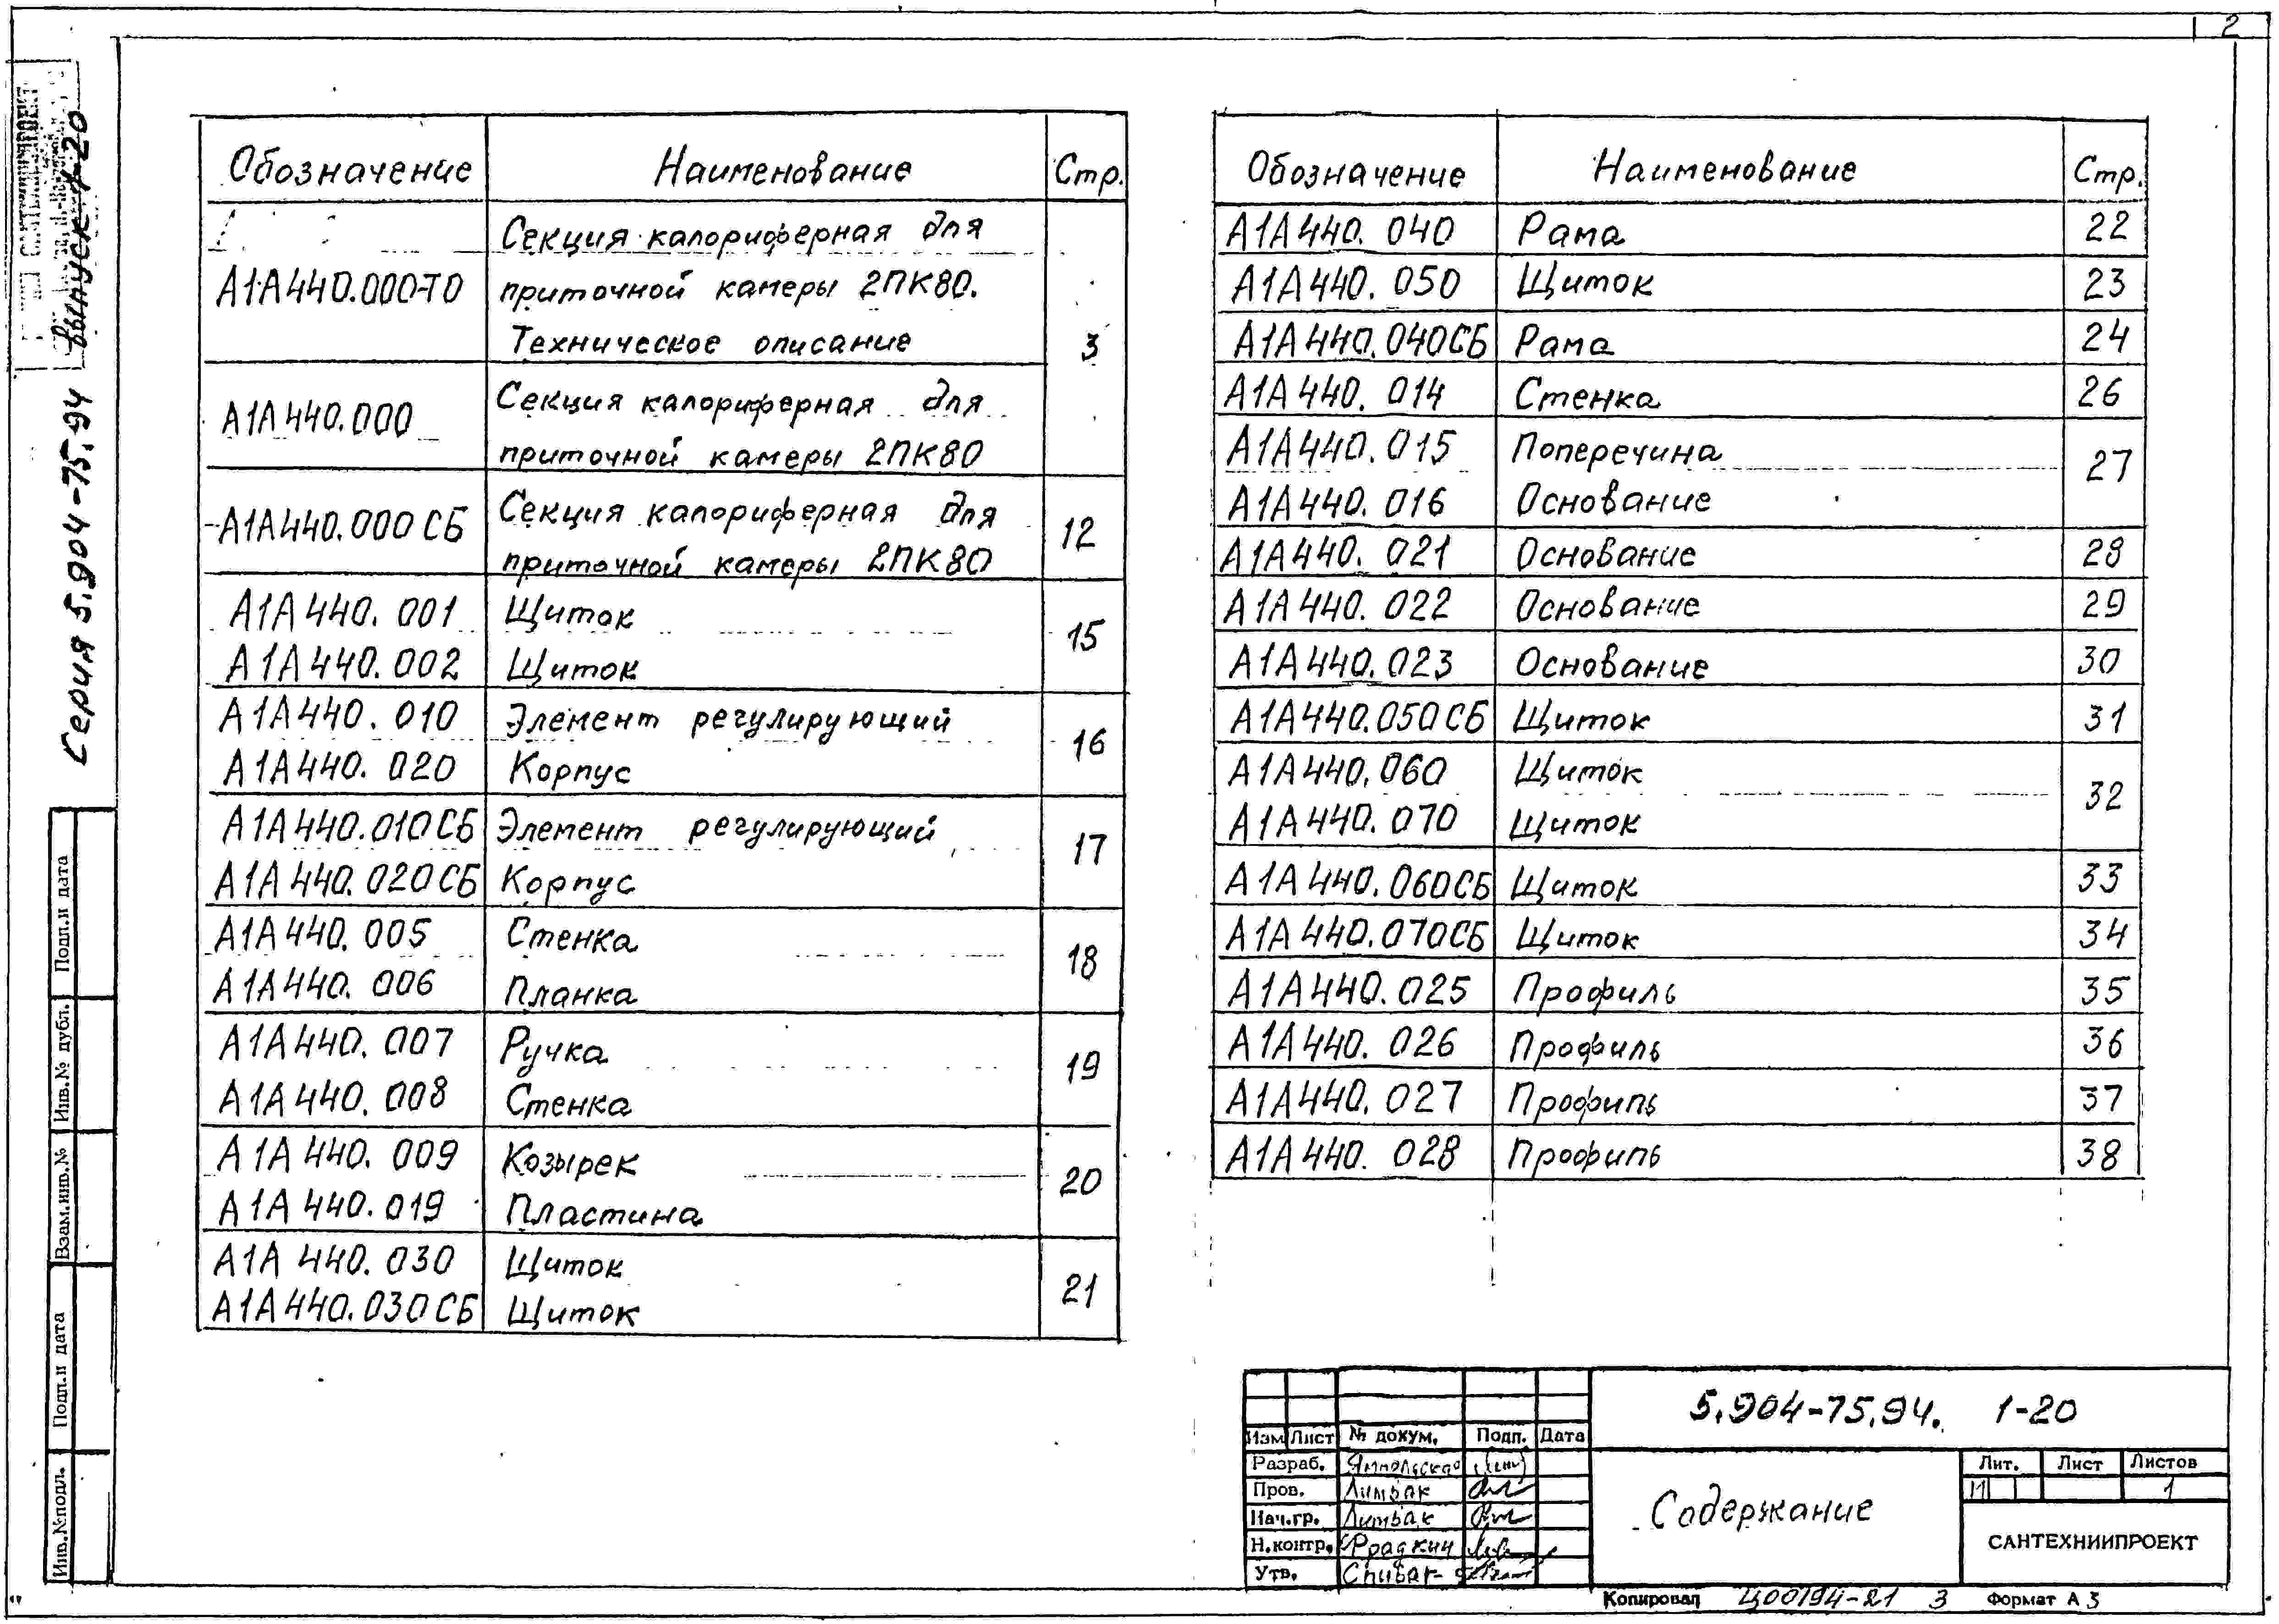 2
Серия 5.904-75.94 выпуск 1-20
Обозначение Наименование Стр.
А1А440.000ТО Секция калориферная для
приточной камеры 2ПК80.
Техническое описание 3
А1А440.000 Секция калориферная для
приточной камеры 2ПК80
А1А440.000 СБ Секция калориферная для
приточной камеры 2ПК80 12
А1А440.001 Щиток 15
А1А440.002 Щиток
А1А440.010 Элемент регулирующий 16
А1А440.020 Корпус
А1А440.010СБ Элемент регулирующий 17
А1А440.020СБ Корпус
А1А440.005 Стенка 18
А1А440.006 Планка
А1А440.007 Ручка 19
А1А440.008 Стенка
А1А440.009 Козырек 20
А1А440.019 Пластина
А1А440.030 Щиток 21
А1А440.030СБ Щиток
Обозначение Наименование Стр.
А1А440.040 Рама 22
А1А440.050 Щиток 23
А1А440.040СБ Рама 24
А1А440.014 Стенка 26
А1А440.015 Поперечина 27
А1А440.016 Основание
А1А440.021 Основание 28
А1А440.022 Основание 29
А1А440.023 Основание 30
А1А440.050СБ Щиток 31
А1А440.060 Щиток 32
А1А440.070 Щиток
А1А440.060СБ Щиток 33
А1А440.070СБ Щиток 34
А1А440.025 Профиль 35
А1А440.026 Профиль 36
А1А440.027 Профиль 37
А1А440.028 Профиль 38
Подп.и дата
Инв.№ дубл.
Взам.инв.№
Подп.и дата
Инв.№подл.
5.904-75.94. 1-20
Изм Лист № докум. Подп. Дата
Разраб. Ямпольская
Пров. Литвак
Нач.гр. Литвак
Н.контр. Фрадкин
Утв. Спивак
Содержание
Лит. Лист Листов
И 1
САНТЕХНИИПРОЕКТ
Копировал Ц00194-21 3 Формат А3